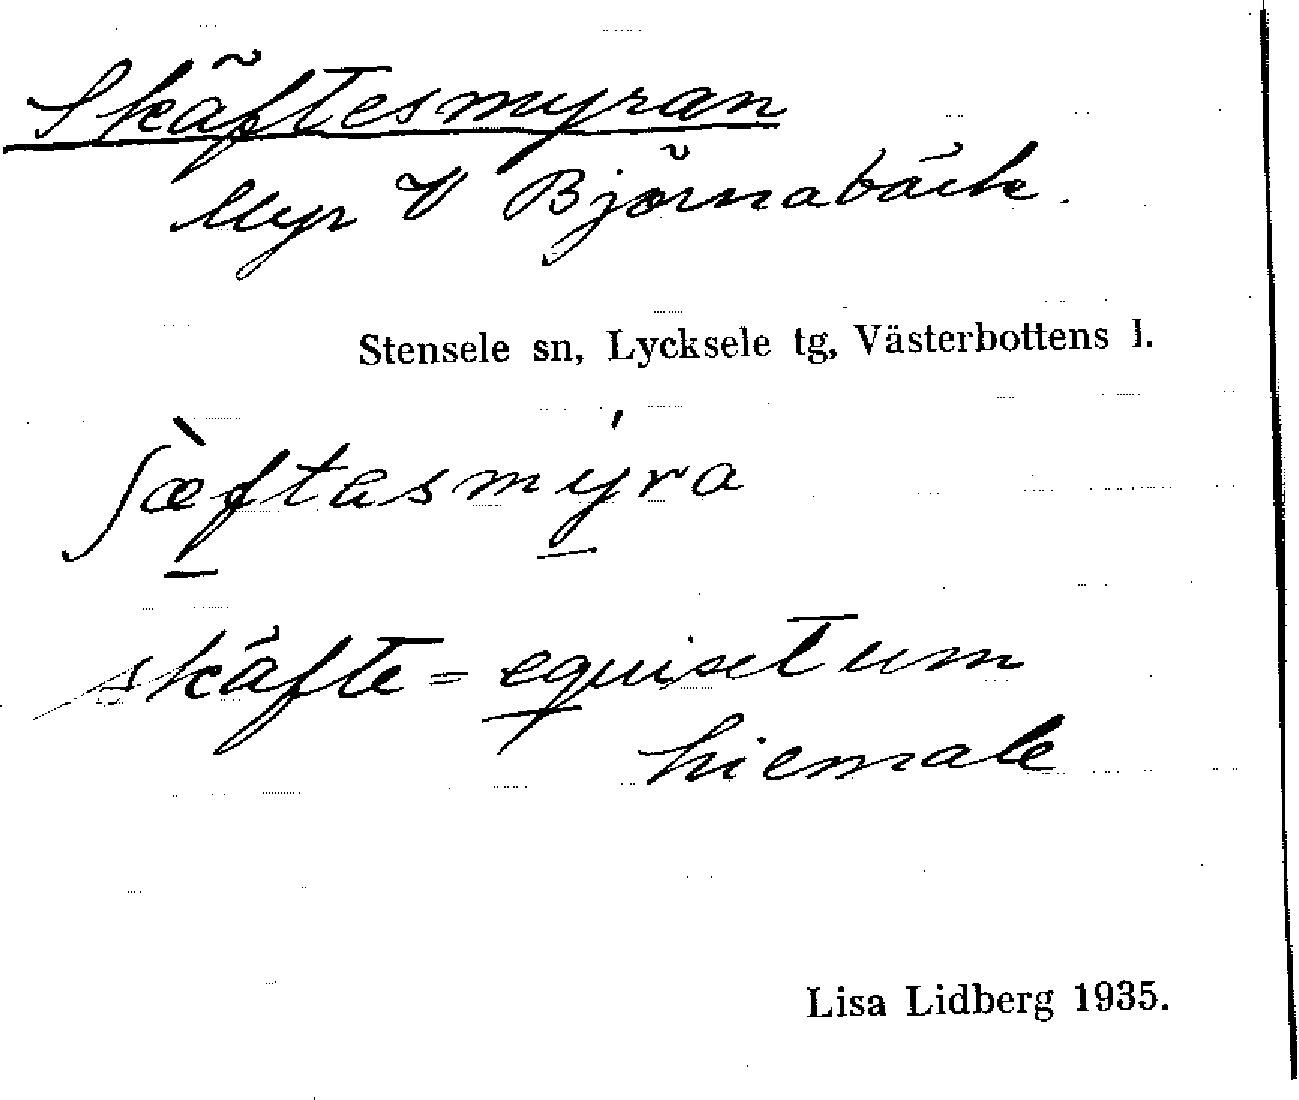 Skäftesmyran
Myr V Björnabäck.
Stensele sn, Lycksele tg, Västerbottens l.
ʃæ̀ftasmýra
skäfte = equisetum
hiemale
Lisa Lidberg 1935.